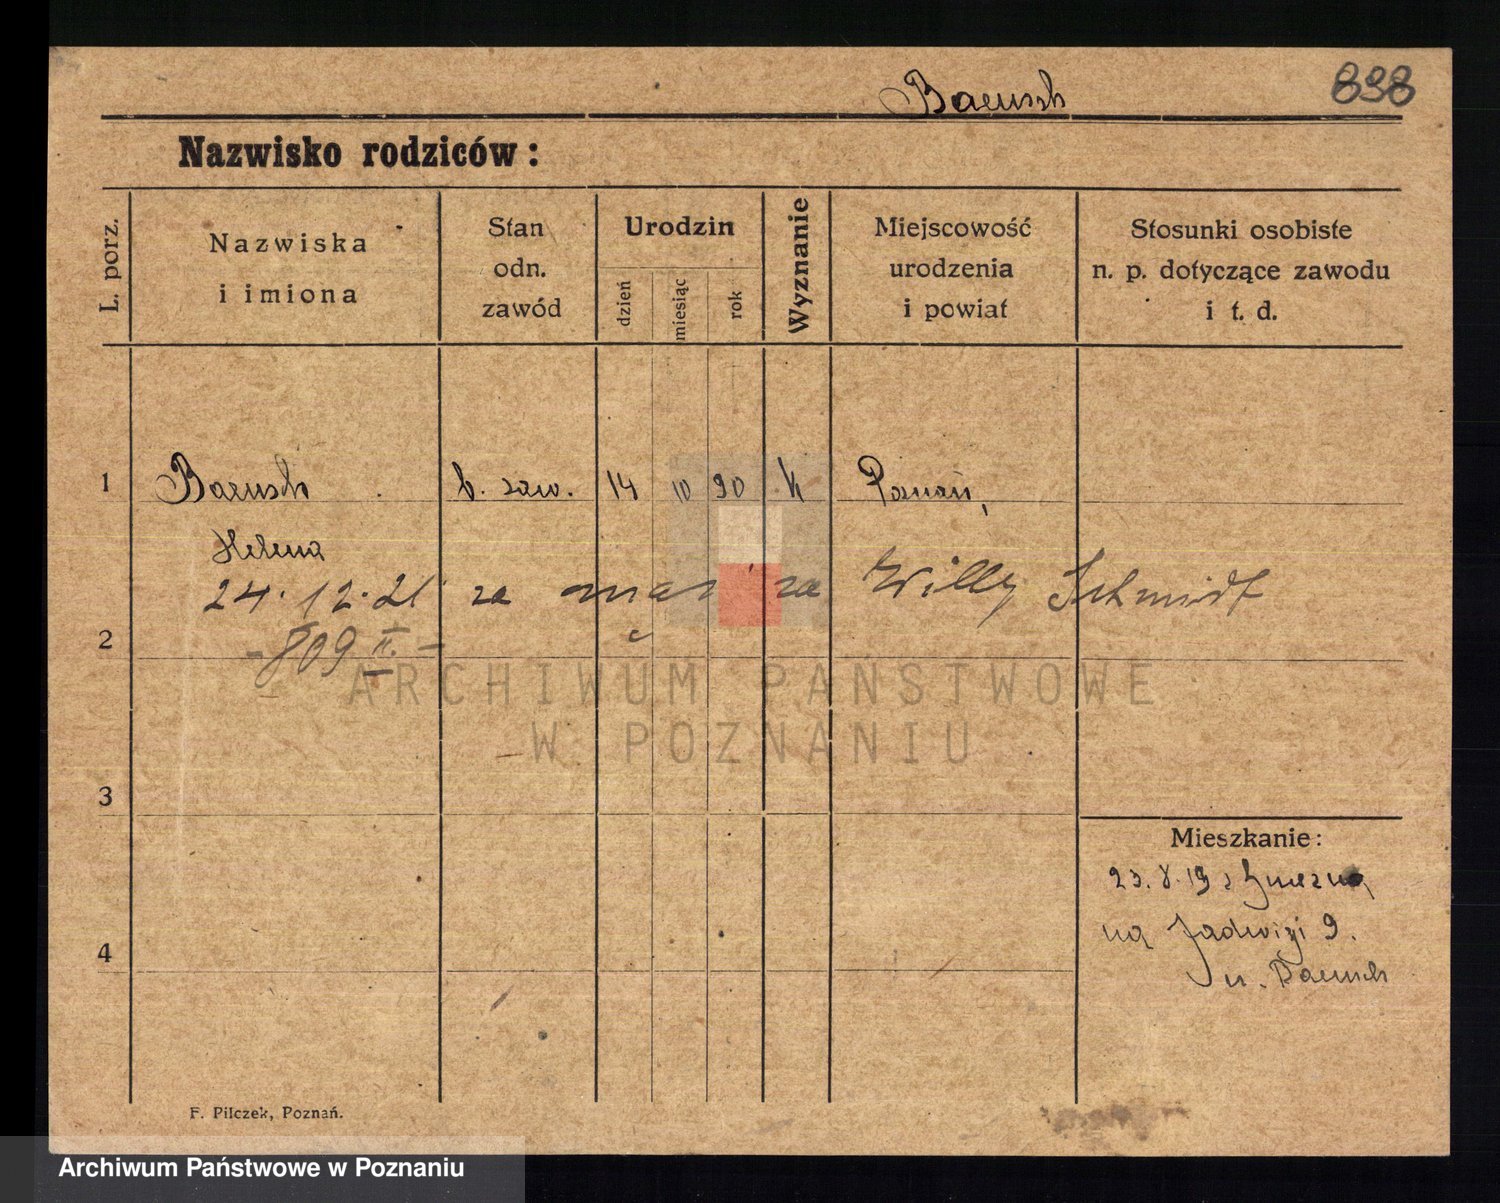 Baensch 898
Nazwisko rodziców:
L. porz.
Nazwiska
i imiona
Stan
odn.
zawód
Urodzin
dzień
miesiąc
rok
Wyznanie
Miejscowość
urodzenia
i powiat
Stosunki osobiste
n. p. dotyczące zawodu
i t. d.
1 Baensch b. zaw. 14 10 90 K Poznań,
Helena
24.12.21 za za Willy Schmidt
2 -809 II.-
ARCHIWUM PAŃSTWOWE
W POZNANIU
3
Mieszkanie:
23.8.19 z Gniezna
4 na Jadwigi 9.
u. Baensch
F. Pilczek, Poznań.
Archiwum Państwowe w Poznaniu